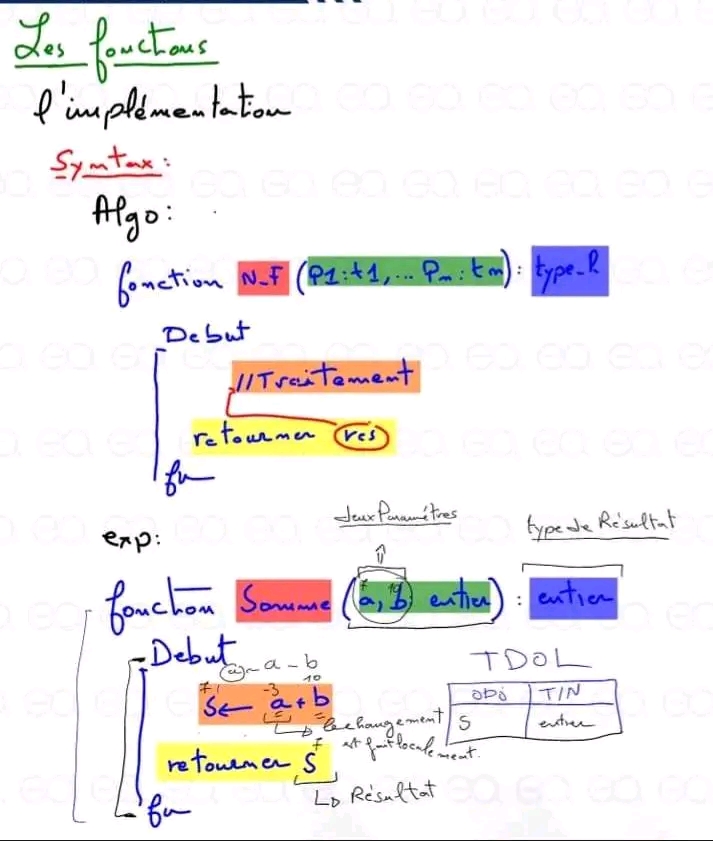 Les fonctions
l'implémentation
Syntax:
Algo:
fonction N_F (P1:t1,... Pn:tn): type_R
Debut
//Traitement
retourner res
fin
exp:
deux Paramètres
type de Résultat
fonction Somme (a, b: entier) : entier
7 10
Debut
a ← a - b
TDOL
Obj T/N
S entier
7 -3 10
S ← a + b
le changement
est fait localement.
7
retourner S
Résultat
fin